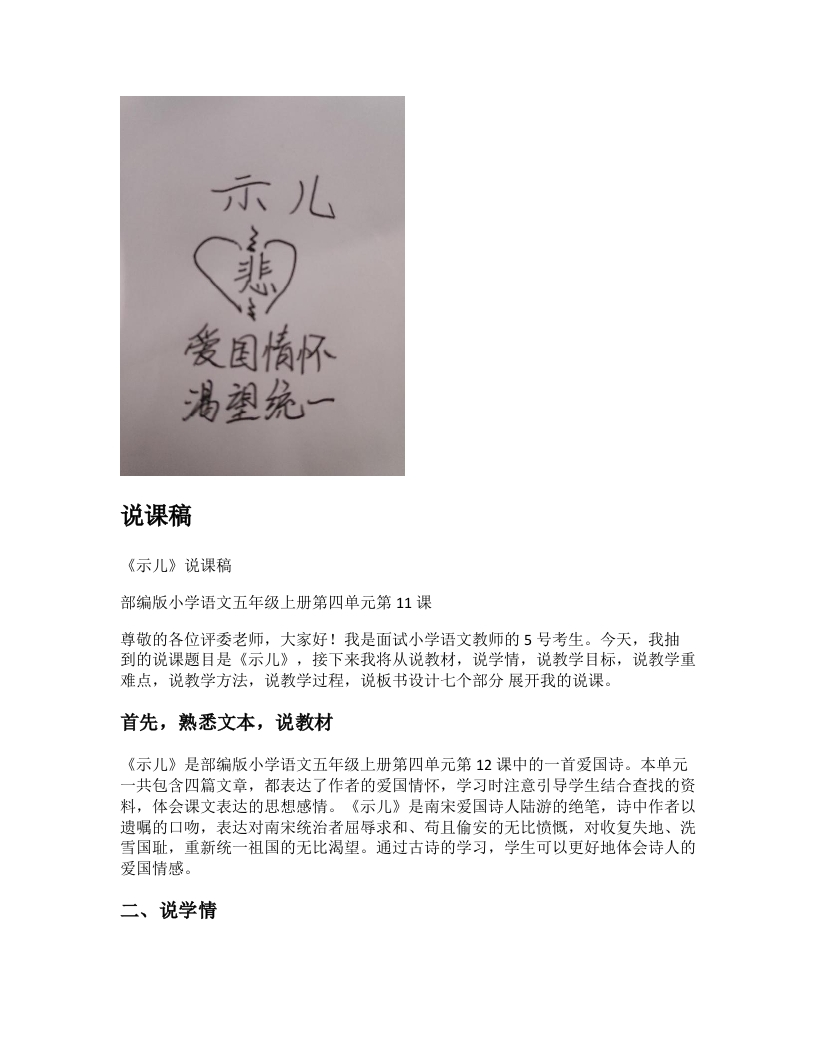 示儿
悲
爱国情怀
渴望统一
说课稿
《示儿》说课稿
部编版小学语文五年级上册第四单元第 11 课
尊敬的各位评委老师，大家好！我是面试小学语文教师的 5 号考生。今天，我抽
到的说课题目是《示儿》，接下来我将从说教材，说学情，说教学目标，说教学重
难点，说教学方法，说教学过程，说板书设计七个部分 展开我的说课。
首先，熟悉文本，说教材
《示儿》是部编版小学语文五年级上册第四单元第 12 课中的一首爱国诗。本单元
一共包含四篇文章，都表达了作者的爱国情怀，学习时注意引导学生结合查找的资
料，体会课文表达的思想感情。《示儿》是南宋爱国诗人陆游的绝笔，诗中作者以
遗嘱的口吻，表达对南宋统治者屈辱求和、苟且偷安的无比愤慨，对收复失地、洗
雪国耻，重新统一祖国的无比渴望。通过古诗的学习，学生可以更好地体会诗人的
爱国情感。
二、说学情